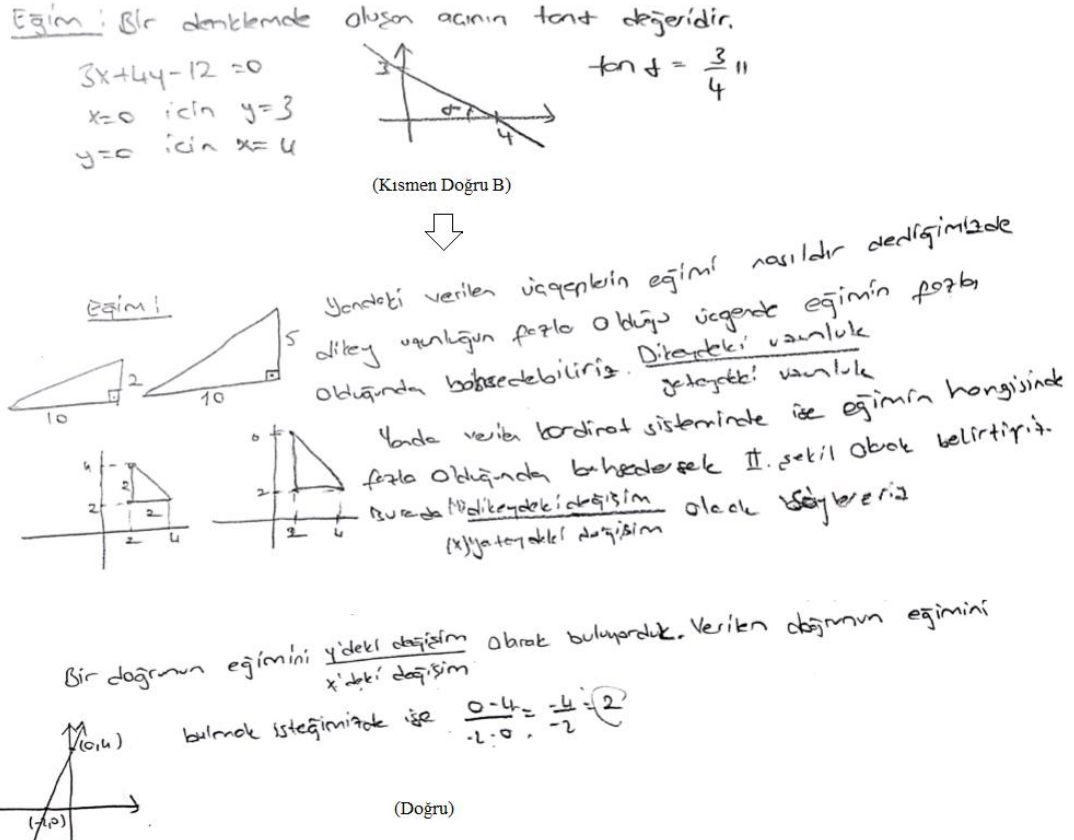 Eğim : Bir denklemde oluşan açının tant değeridir.
3x+4y-12 =0
x=0 icin y=3
y=0 icin x=4
3
4
tan t = 3/4 //
(Kısmen Doğru B)
Eğim !
2
10
5
10
Yandaki verilen üçgenlerin eğimi nasıldır dediğimizde
dikey uzunluğun fazla olduğu üçgende eğimin fazla
olduğundan bahsedebiliriz. Dikeydeki uzunluk / yataydaki uzunluk
4
2
2
2
2
4
6
2
2
4
Yanda verilen kordinat sisteminde ise eğimin hangisinde
fazla olduğundan bahsedersek II. şekil olarak belirtiriz.
Burada (y)dikeydeki değişim / (x)yataydaki değişim olarak söyleriz
Bir doğrunun eğimini y'deki değişim / x'deki değişim olarak buluyorduk. Verilen doğrunun eğimini
bulmak isteğimizde ise 0-4 / -2-0 = -4 / -2 = 2
(0,4)
(-2,0)
(Doğru)